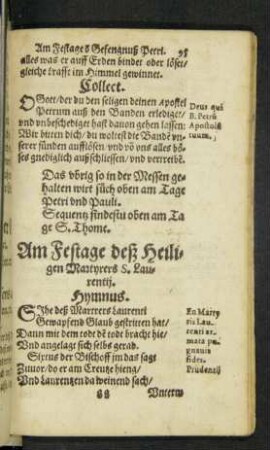 Am Festage S Gefengnuß Petri. 95
alles was er auff Erden bindet oder löset/
gleiche krafft im Himmel gewinnet.
Collect.
O Gott/der du den seligen deinen Apostel
Petrum auß den Banden erlediget/
vnd vnbeschediget hast dauon gehen lassen:
Wir bitten dich/du wollest die Bande vn-
serer sünden aufflösen vnd võ vns alles bö-
ses gnediglich außschliessen/vnd vertreibẽ.
Deus qui
B. Petrũ
Apostolũ
tuum.
Das vbrig so in der Messen ge-
halten wirt such oben am Tage
Petri vnd Pauli.
Sequentz findestu oben am Ta
ge S. Thome.
Am Festage deß Heili-
gen Martyrers S. Lau-
rentij.
Hymnus.
Sihe deß Martrers Laurenti
Gewapfend Glaub gestritten hat/
Dann mit dem todt dẽ todt bracht hie/
Vnd angelage sich selbs gerad.
Sixtus der Bischoff im das sagt
Zuuor/do er am Creutze hieng/
Vnd Laurentzen da weinend sach/
En Marty
ris Lau-
renti ar-
mata pu-
gnauit
fides.
Prudentij
Vnterw